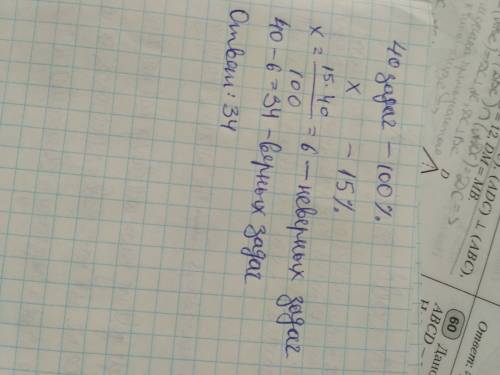 40 задач – 100%
x – 15%
x = 15·40 / 100 = 6 – неверных задач
40 – 6 = 34 – верных задач
Ответ: 34
DM = MB
(ADC) ⊥ (ABC),
Ответ:
60 Дано
ABCD –